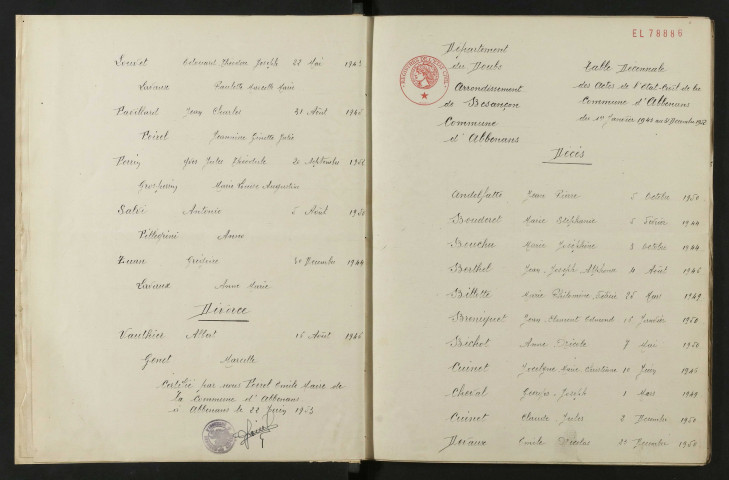 Louvet Edouard Théodore Joseph 22 Mai 1943
Paulette Marcelle Marie
Pavillard Jean Charles 31 Août 1946
Poisel Jeannine Ginette
20 Septembre
Marie Louise Augustine
Salvi Antonio 5 Août 1950
Pellegrini Anna
30 Décembre 1944
Anne Marie
Divorce
Vauthier Albert 16 Août 1946
Genet Marcelle
Certifié par nous Maire de
la commune d'Abbenans
à Abbenans le 22 Juin 1953
EL 78886
Département
du Doubs
Arrondissement
de Besançon
Commune
d'Abbenans
Table Décennale
des Actes de l'état-civil de la
Commune d'Abbenans
du 1er Janvier 1943 au 31 Décembre 1952
Décès
Jean Pierre 5 Octobre 1950
Bouderet Marie Stéphanie 5 Février 1944
Bouchu Marie Joséphine 3 Octobre 1944
Berthel Jean-Joseph Alphonse 4 Août 1946
Billotte Marie Philomène 26 Mars 1949
Broniquet Jean Clément Edmond 16 Janvier 1950
Bichet Anne 7 Mai 1950
Cuinet Jocelyne Marie Christiane 10 Juin 1945
Cheval Georges-Joseph 1 Mars 1949
Cuinet Claude Jules 2 Décembre 1950
Devaux Emile Nicolas 22 Décembre 1950